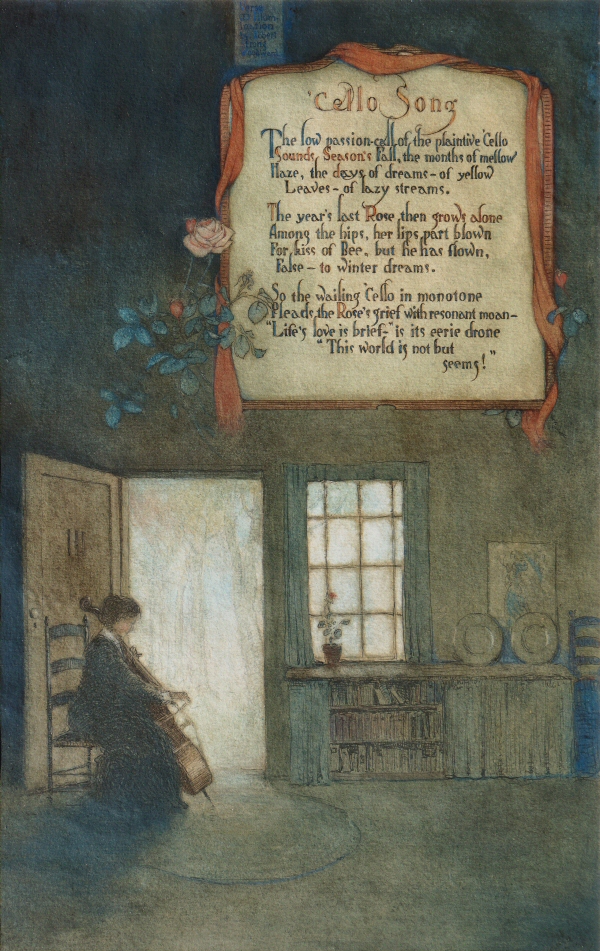 'Cello Song
The low passion-call of the plaintive 'Cello
Sounds, Season's Fall, the months of mellow
Haze, the days of dreams - of yellow
Leaves - of lazy streams.
The year's last Rose then grows alone
Among the hips, her lips part blown
For kiss of Bee, but he has flown,
False - to winter dreams.
So the wailing 'Cello in monotone
Pleads the Rose's grief with resonant moan -
"Life's love is brief," is its eerie drone
"This world is not but
seems!"